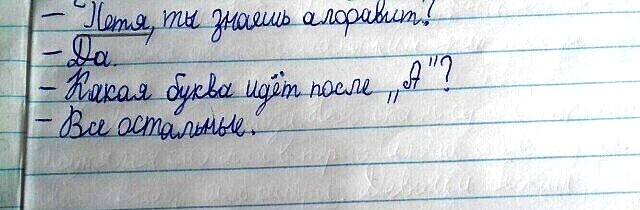 — Петя, ты знаешь алфавит?
— Да.
— Какая буква идёт после „А"?
— Все остальные.